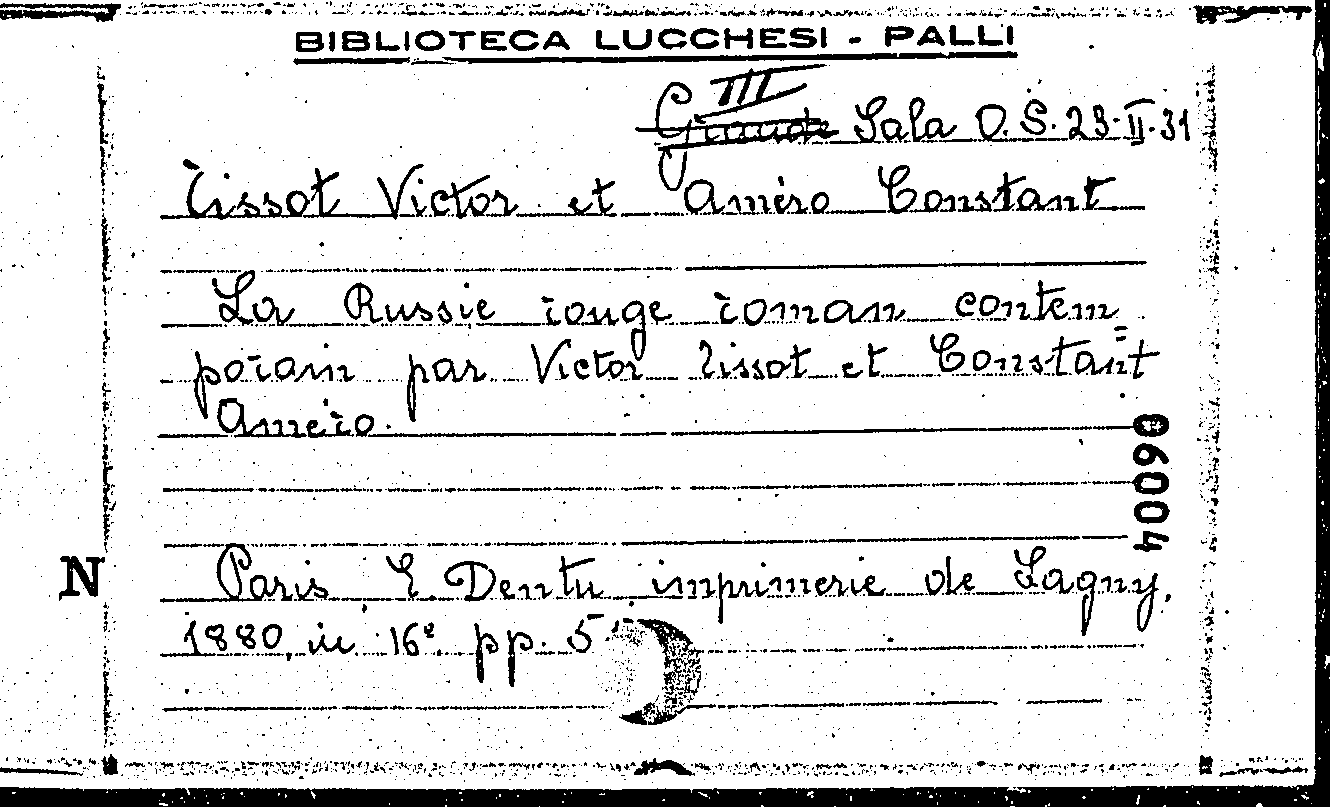 BIBLIOTECA LUCCHESI - PALLI
III
Grande Sala O. S. 23-II-31
Tissot Victor et Améro Constant
La Russie rouge roman contem
porain par Victor Tissot et Constant
Améro.
06004
N
Paris E. Dentu imprimerie de Lagny,
1880, in 16º. pp. 5